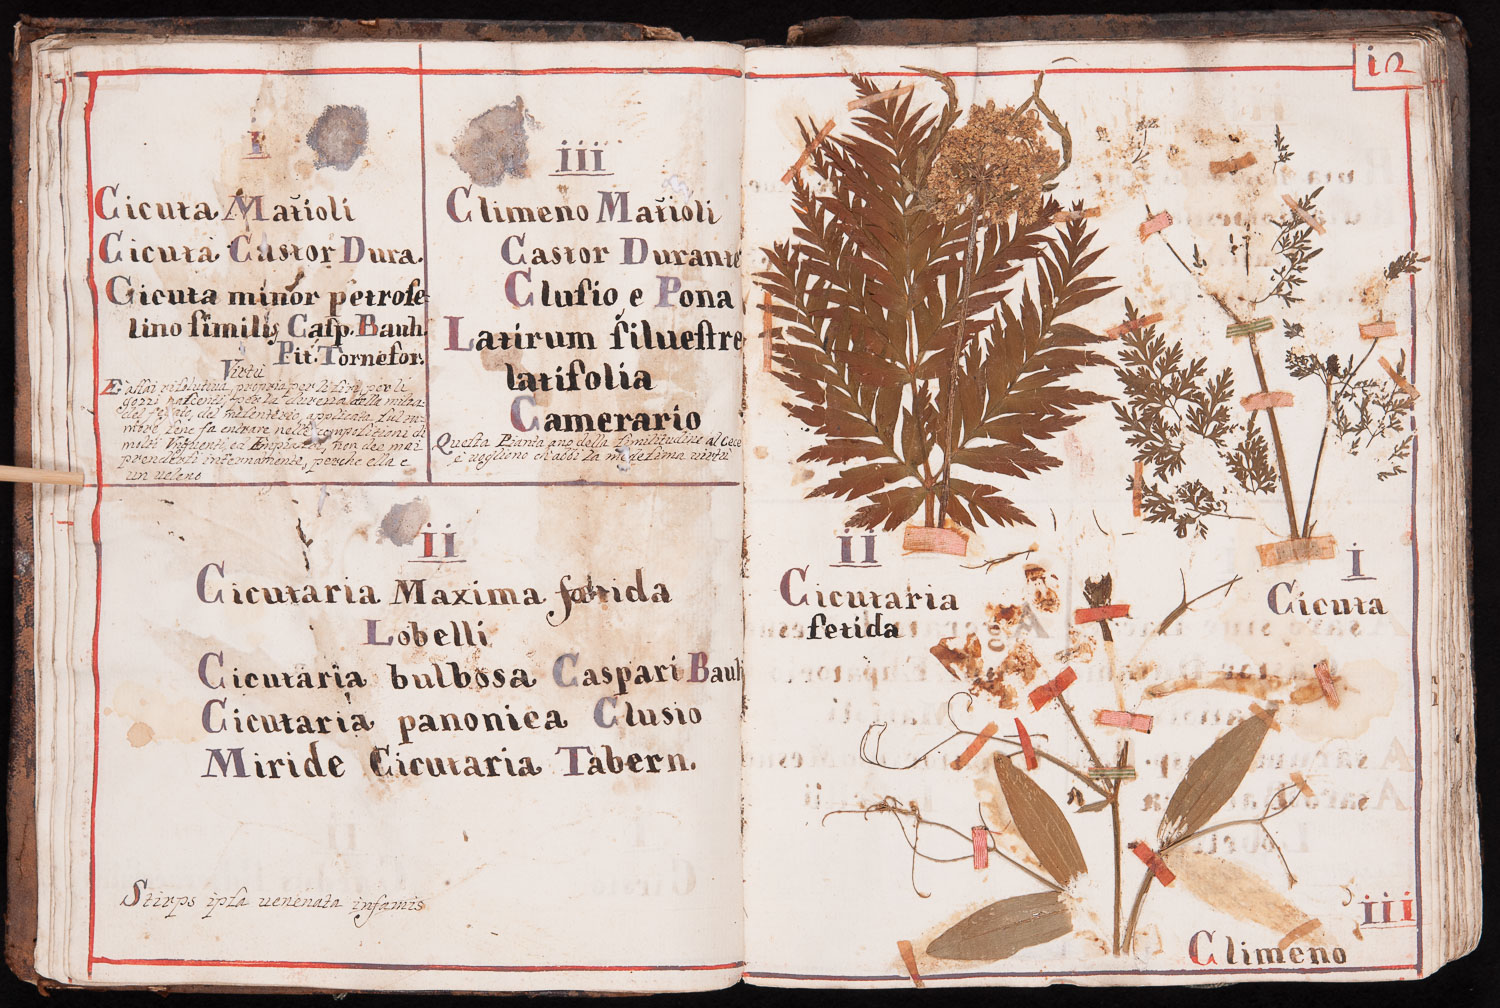 i
Cicuta Matioli
Cicuta Castor Dura.
Cicuta minor petrose-
lino similis Casp. Bauh.
Pit. Tornefor.
Virtù
E' assai risolutiva, propria per
gozzi nascenti, per la durezza della milza
del fegato, del misenterio, applicata
fa entrare nelle composizioni di
molti Unguenti ed Empiastri, non dee mai
prendersi internamente, perche ella e
un veleno
iii
Climeno Matioli
Castor Durante
Clusio e Pona
Latirum siluestre
latifolia
Camerario
Questa Pianta ano della similitudine al Cece
e vogliono ch'abbi la medesima virtù
ii
Cicutaria Maxima fœtida
Lobelli
Cicutaria bulbosa Caspari Bauh
Cicutaria panonica Clusio
Miride Cicutaria Tabern.
Stirps ipsa venenata infamis
12
ii
Cicutaria
fetida
i
Cicuta
iii
Climeno